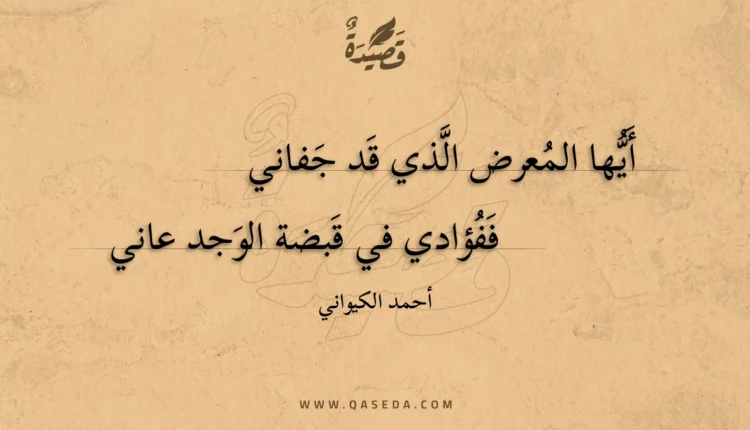 قَصِيدَةٌ
أَيُّها المُعرض الَّذي قَد جَفاني
فَفُؤادي في قَبضة الوَجد عاني
أحمد الكيواني
WWW.QASEDA.COM